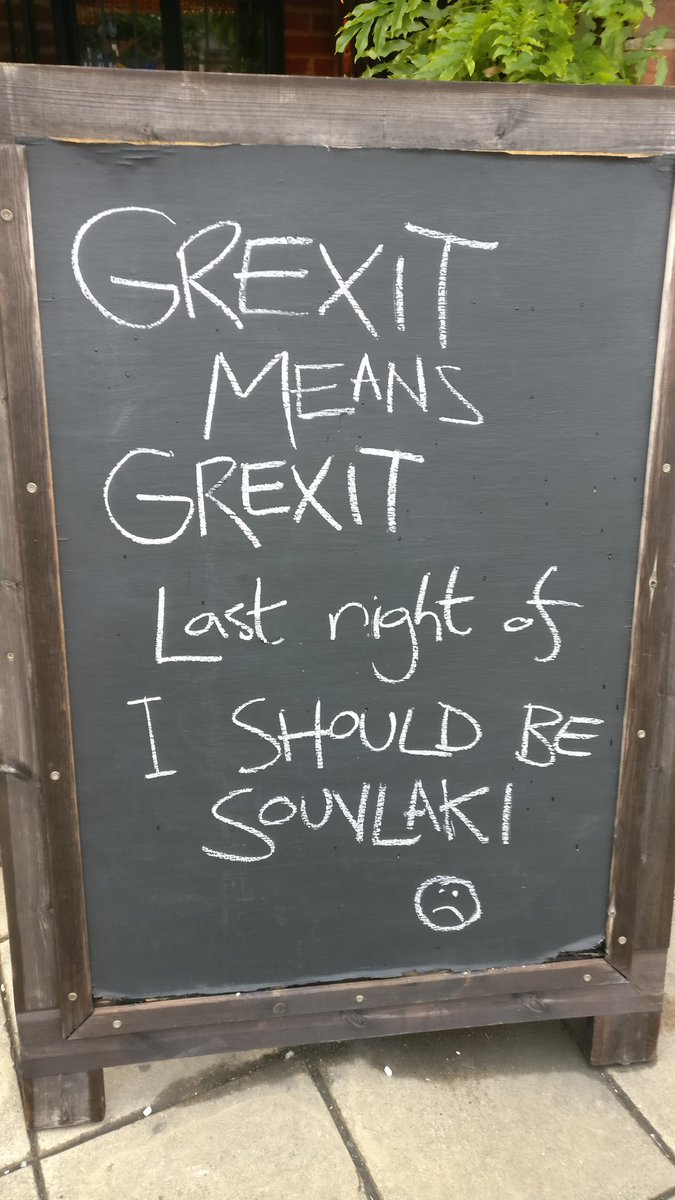 GREXIT
MEANS
GREXIT
Last night of
I SHOULD BE
SOUVLAKI